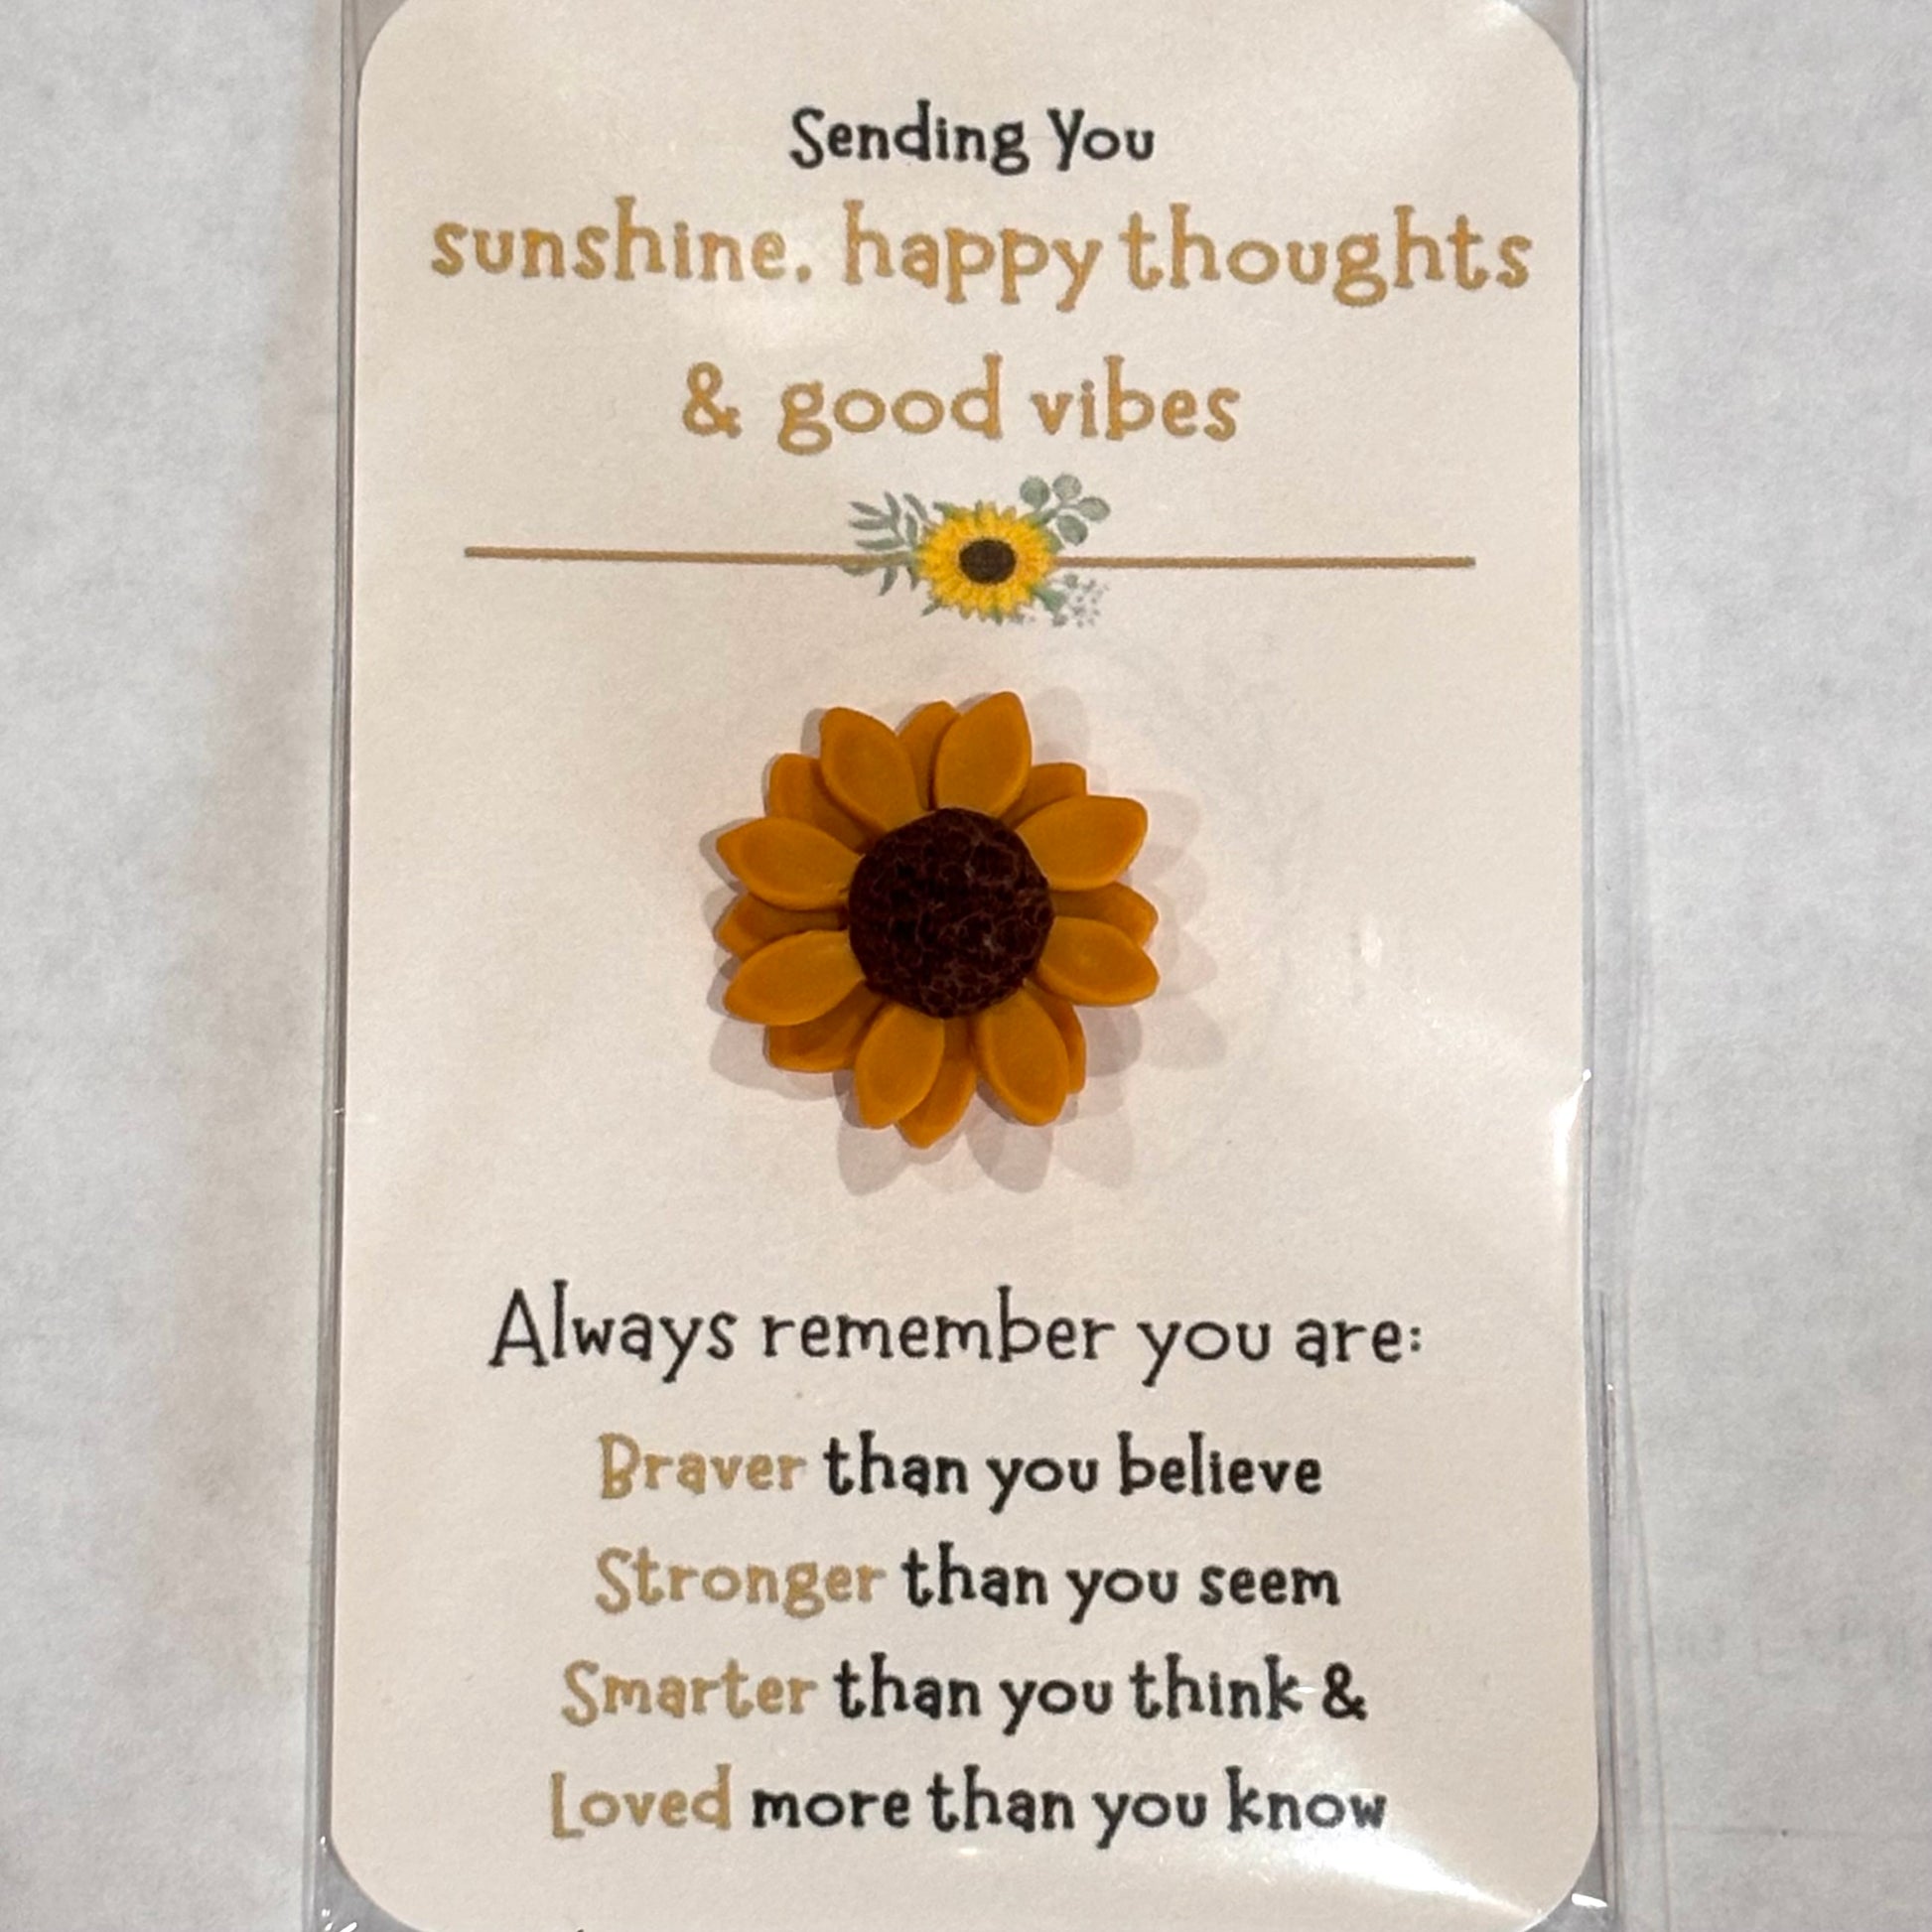 Sending You
sunshine, happy thoughts
& good vibes
Always remember you are:
Braver than you believe
Stronger than you seem
Smarter than you think &
Loved more than you know